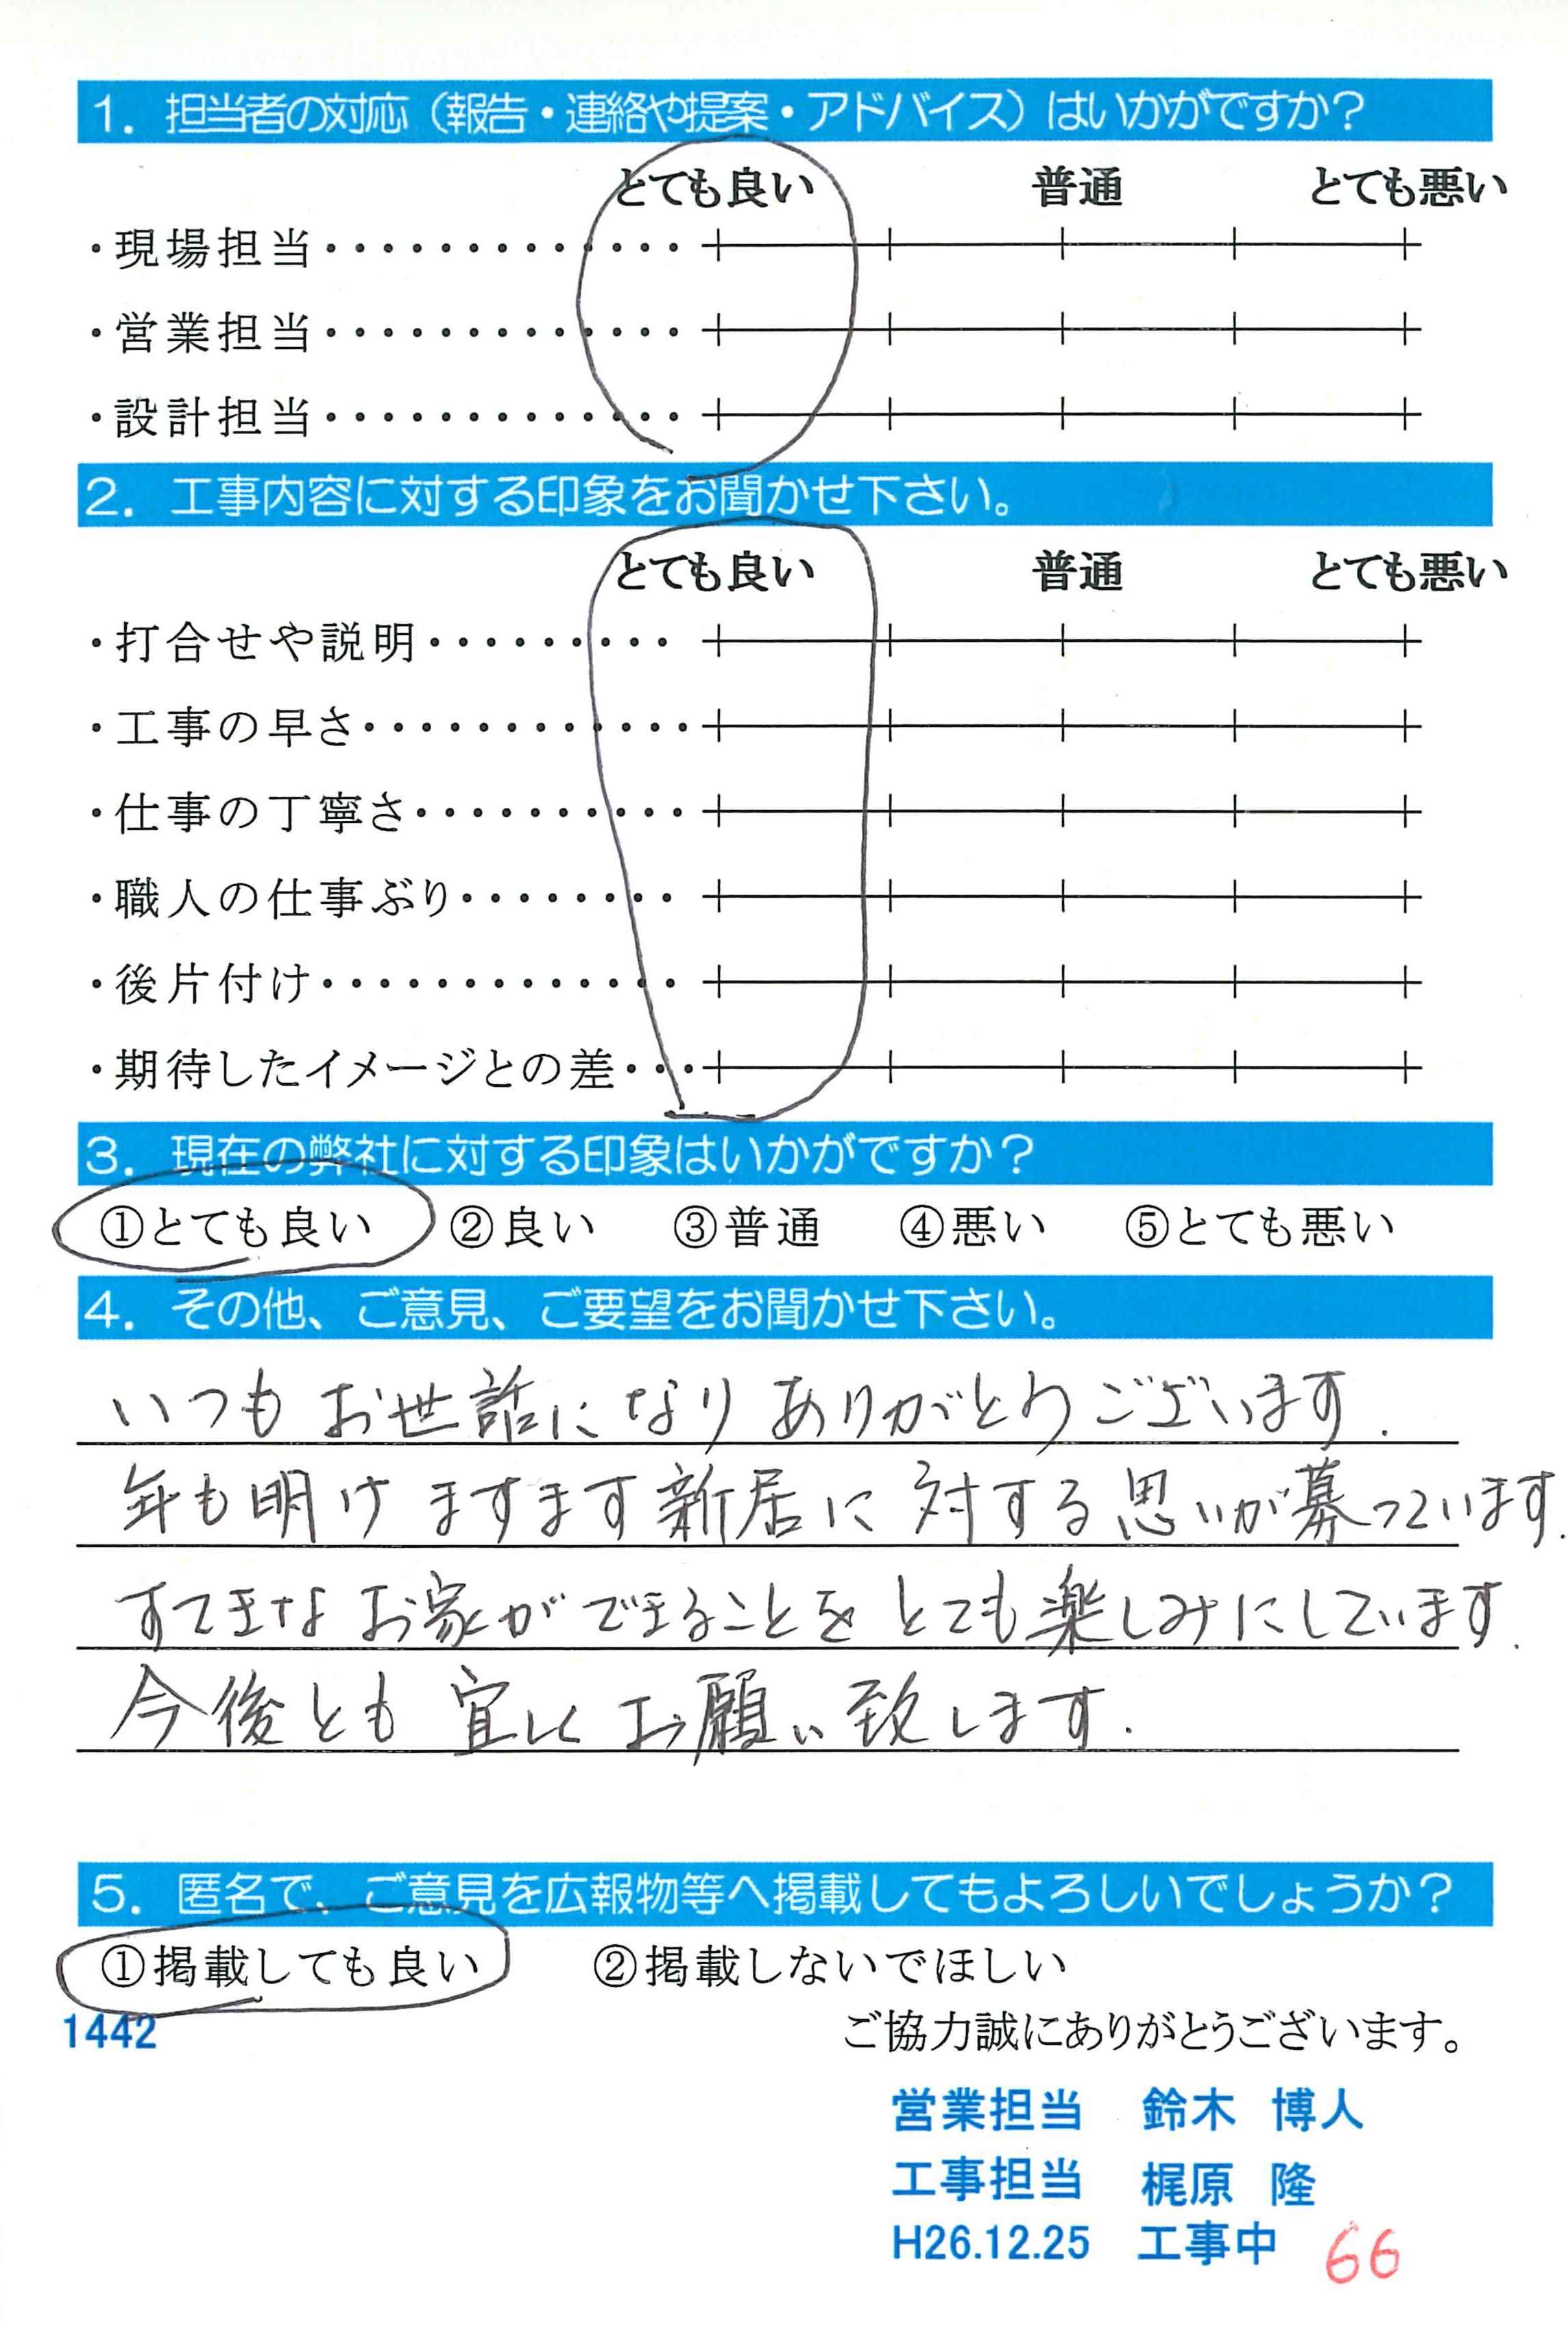 1. 担当者の対応（報告・連絡や提案・アドバイス）はいかがですか？
とても良い 普通 とても悪い
・現場担当・・・・・・・・・・・・・
・営業担当・・・・・・・・・・・・・
・設計担当・・・・・・・・・・・・・
2. 工事内容に対する印象をお聞かせ下さい。
とても良い 普通 とても悪い
・打合せや説明・・・・・・・・・
・工事の早さ・・・・・・・・・・・・
・仕事の丁寧さ・・・・・・・・・・
・職人の仕事ぶり・・・・・・・・
・後片付け・・・・・・・・・・・・・
・期待したイメージとの差・・・
3. 現在の弊社に対する印象はいかがですか？
①とても良い ②良い ③普通 ④悪い ⑤とても悪い
4. その他、ご意見、ご要望をお聞かせ下さい。
いつもお世話になりありがとうございます.
年も明けますます新居に対する思いが募っています.
すてきなお家ができることをとても楽しみにしています.
今後とも宜しくお願い致します.
5. 匿名で、ご意見を広報物等へ掲載してもよろしいでしょうか？
①掲載しても良い ②掲載しないでほしい
1442
ご協力誠にありがとうございます。
営業担当 鈴木 博人
工事担当 梶原 隆
H26.12.25 工事中 66